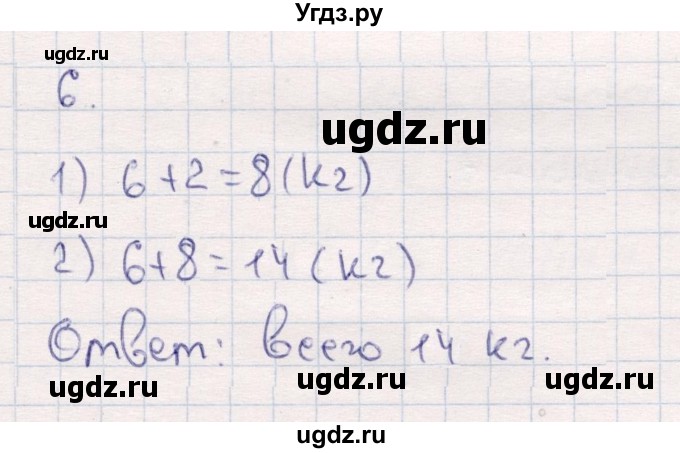 Угдз.ру
ugdz.ru
6.
ugdz.ru
1) 6+2=8(кг)
ugdz.ru
2) 6+8=14(кг)
Ответ: всего 14 кг.
ugdz.ru
ugdz.ru
ugdz.ru